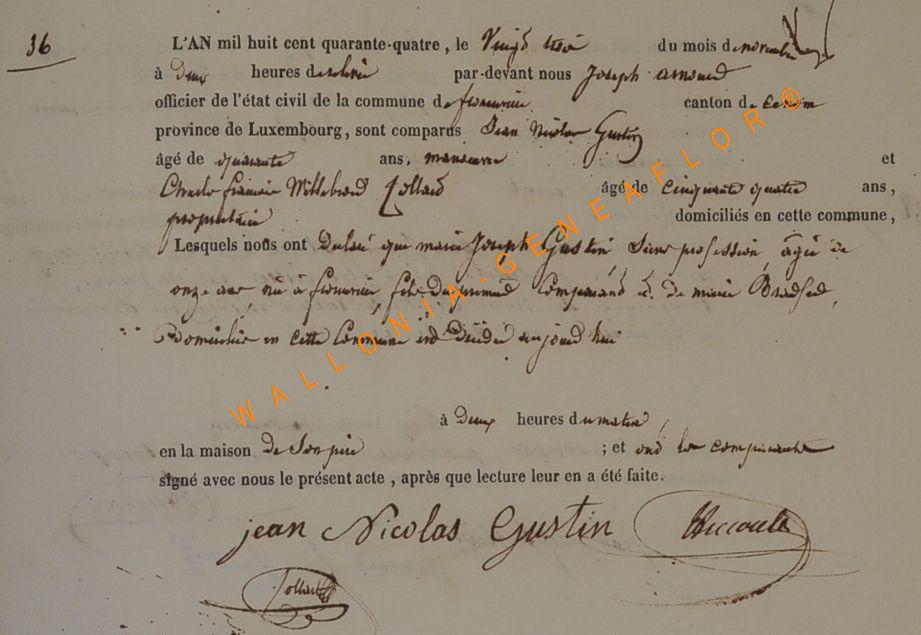 36
L'AN mil huit cent quarante-quatre, le Vingt trois du mois de novembre
à deux heures de relevée par-devant nous Joseph arnould
officier de l'état civil de la commune de canton de
province de Luxembourg, sont comparus Jean Nicolas Gustin
âgé de quarante ans, manoeuvre et
Charle françois Willebrord Collard âgé de cinquante quatre ans,
proprietaire domiciliés en cette commune,
Lesquels nous ont declaré que marie Joseph Gustin Sans profession âgée de
onze ans née à fille du premier Comparant et de marie
Domiciliée en cette Commune est décédée aujourd'hui
à deux heures du matin,
en la maison de Son père ; et ont les comparants
signé avec nous le présent acte, après que lecture leur en a été faite.
jean Nicolas Gustin
Collard
WALLONIA-GENEAFLOR®